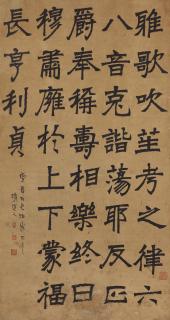 雅歌吹笙考之律六
八音克諧蕩耶反正
爵奉稱壽相樂終日
穆肅雍於上下蒙福
長享利貞